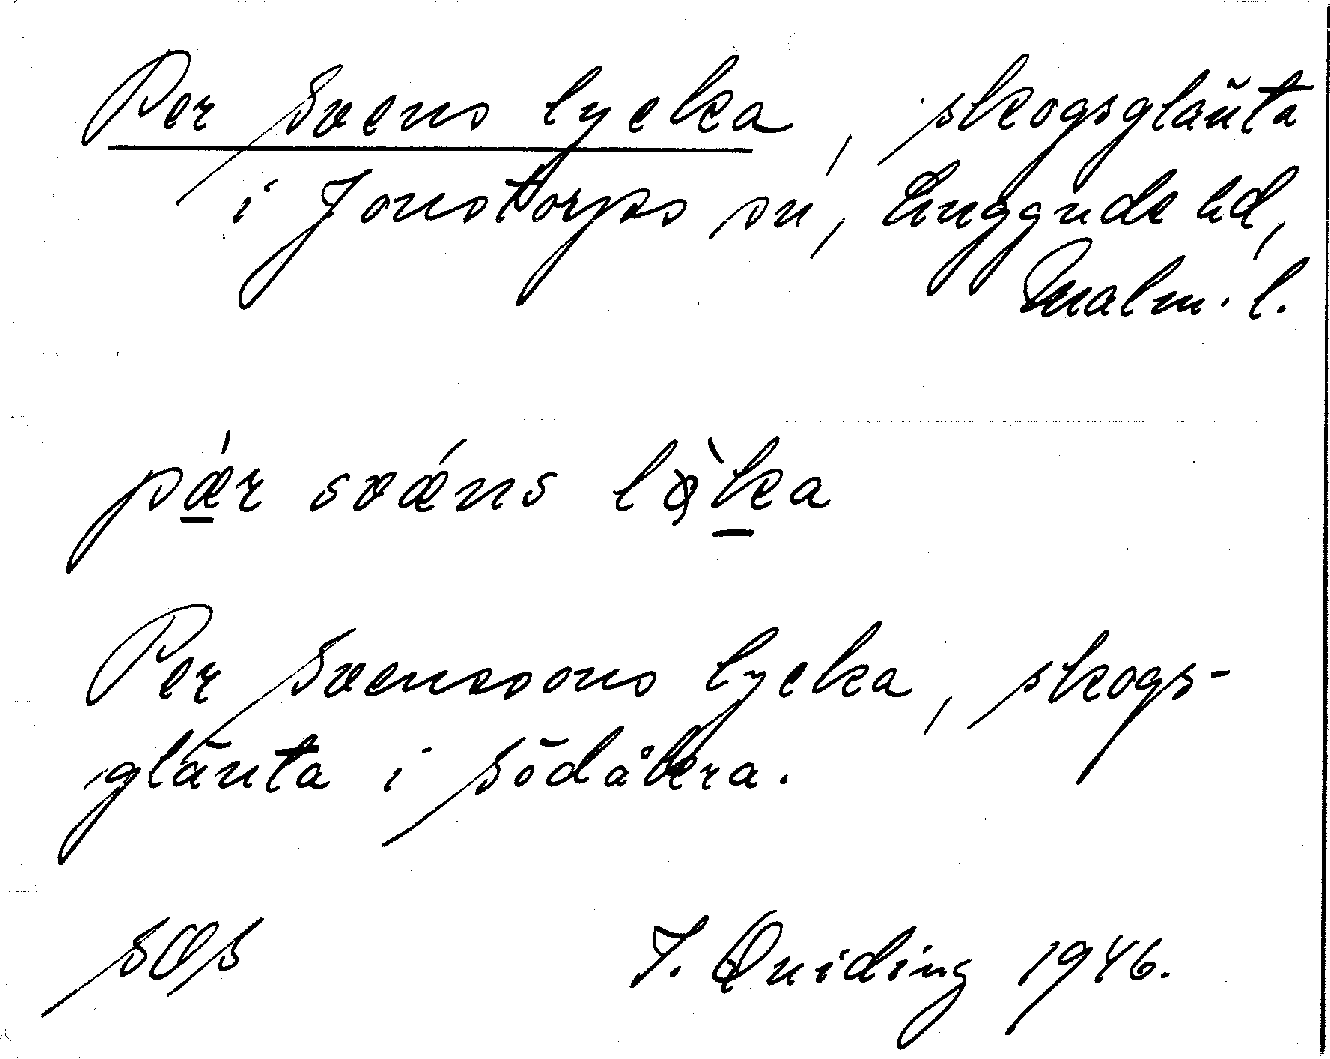 Per Svens lycka, skogsglänta
i Jonstorps sn, Luggude hd,
Malm. l.
pǽr svǽns lø̀ka
Per Svenssons lycka, skogs-
glänta i Södåkra.
SOS J. Quiding 1946.